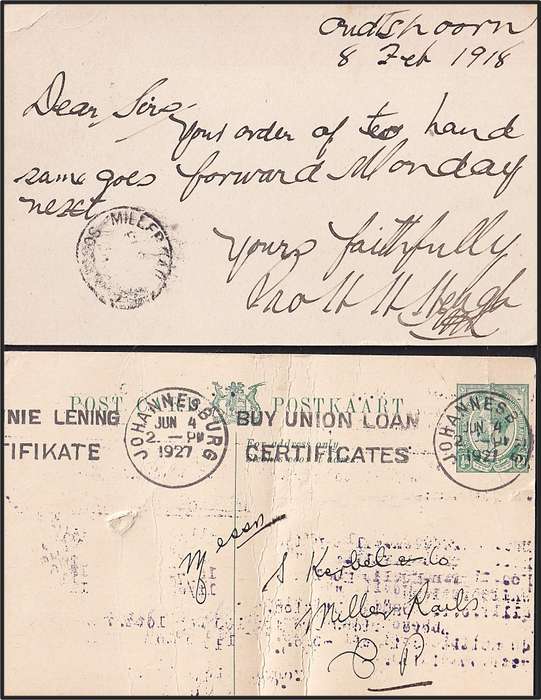 Oudtshoorn
8 Feb 1918
Dear Sirs
Your order of to hand
same goes forward Monday
next
MILLER
Yours faithfully
POST POSTKAART
NIE LENING
TIFIKATE
JOHANNESBURG
JUN 4
2. — PM
1927
BUY UNION LOAN
CERTIFICATES
JOHANNESB
JUN 4
2 — PM
1927
For address only
Messrs
S & Co
Miller Rails
C P